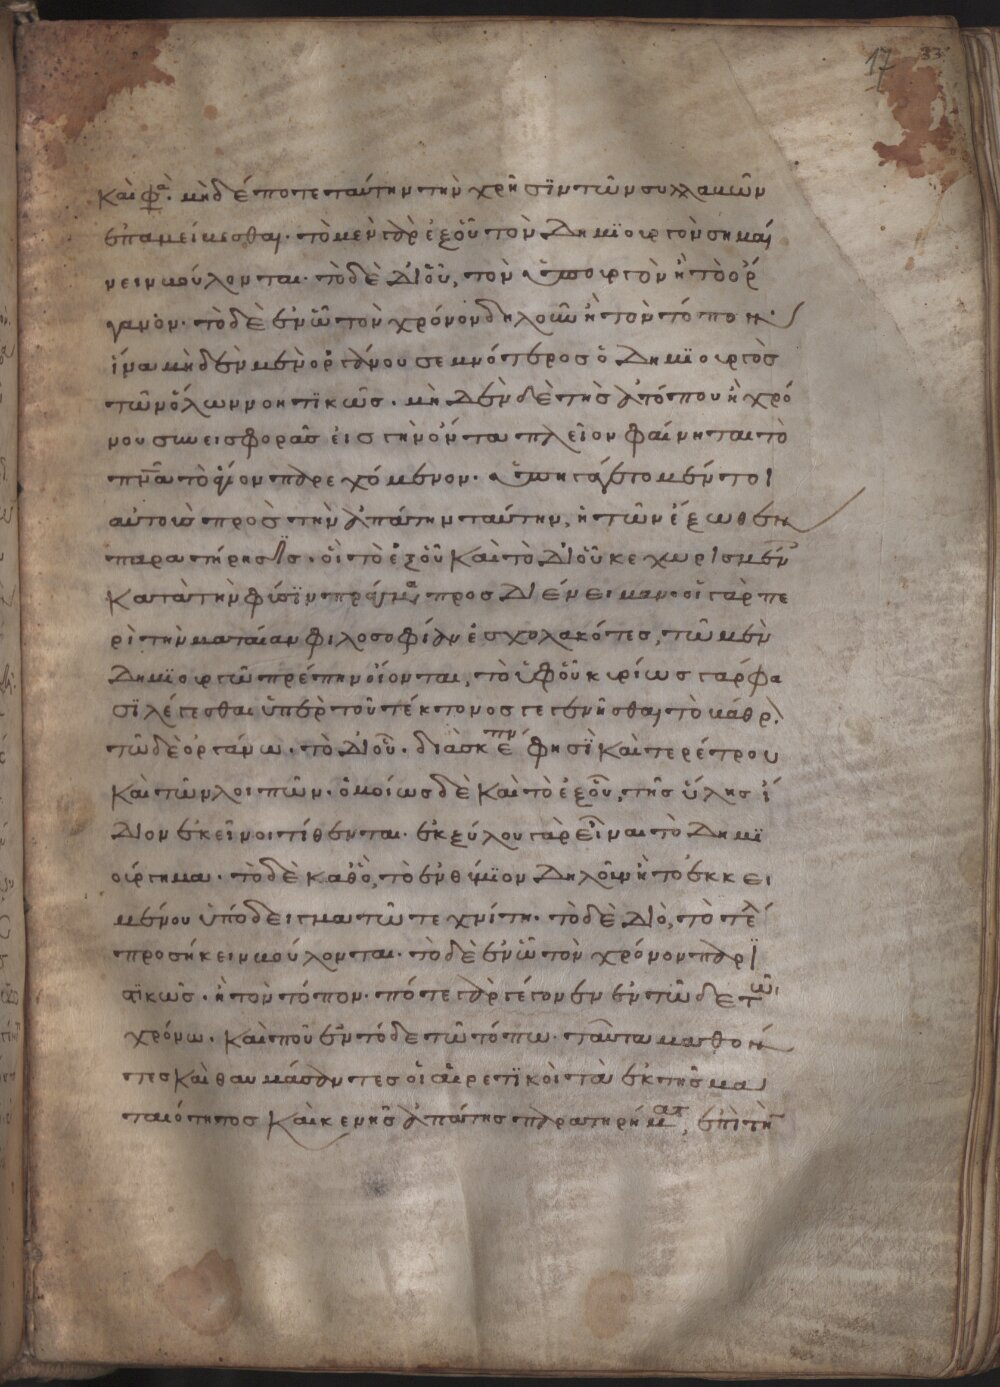 17 33
καὶ φα. μηδέποτε ταύτην τὴν χρῆσϊν τῶν συλλαβῶν
ἐπαμείβεσθαι· τὸ μὲν γὰρ ἐξ οὗ τὸν δημϊουργὸν σημαί
νειν βούλονται· τὸ δὲ δι' οὗ, τὸν ὑπουργὸν ἢ τὸ ὄρ
γανον· τὸ δὲ ἐν ᾧ τὸν χρόνον δηλοῦν ἢ τὸν τόπον·
ἵνα μηδὲν μὲν ὀργάνου σεμνότερος ὁ δημϊουργὸς
τῶν ὅλων νοητϊκῶς. μηδὲν δὲ τῆς ἀπὸ τόπου ἢ χρό
νου συνεισφορᾶς εἰς τὴν ὄντα πλεῖον φαίνηται τὸ
πνα τὸ ἅγιον παρεχόμενον. ὑπηγάγετο μέν τοι
αὐτοὺς πρὸς τὴν ἀπάτην ταύτην, ἡ τῶν ἔξωθεν
παρατήρησϊς. οἳ τὸ ἐξ οὗ καὶ τὸ δι' οὗ κεχωρισμέν
κατὰ τὴν φύσϊν πράγμα προσδιένειμαν· οἱ γὰρ πε
ρὶ τὴν ματαίαν φιλοσοφίαν ἐσχολακότες, τῶ μὲν
δημϊουργῶ πρέπην οἴονται, τὸ ὑφ' οὗ κυρίως γάρ φα
σϊ λέγεσθαι ὑπὲρ τοῦ τέκτονος γεγενῆσθαι τὸ βάθρ.
τῶ δὲ ὀργάνω· τὸ δι' οὗ· διὰ σκεπν φησὶ καὶ τερέτρου
καὶ τῶν λοιπῶν· ὁμοίως δὲ καὶ τὸ ἐξ οὗ, τῆς ὕλης ἴ
διον ἐκεῖνοι τίθενται· ἐκ ξύλου γὰρ εἶναι τὸ δημϊ
ούργημα· τὸ δὲ καθ' ὃ, τὸ ἐνθύμϊον δηλοῦν ἢ τὸ ἐκκεί
μένου ὑπόδειγμα τῶ τεχνίτη· τὸ δὲ δι' ὃ, τὸ τέλ
προσήκειν βούλονται· τὸ δὲ ἐν ᾧ τὸν χρόνον παρϊ
σϊκῶς. ἢ τὸν τόπον· πότε γὰρ γέγονεν ἐν τῶδε τῶ
χρόνω. καὶ ποῦ ἐν τόδε τῶ τόπω· ταῦτα μαθόν
τες καὶ θαυμάσαντες οἱ αἱρετϊκοὶ τὰ ἐκ τῆς μα
ταιότητος καὶ κενῆς ἀπάτης παρατηρήματ, ἐπὶ τὴν